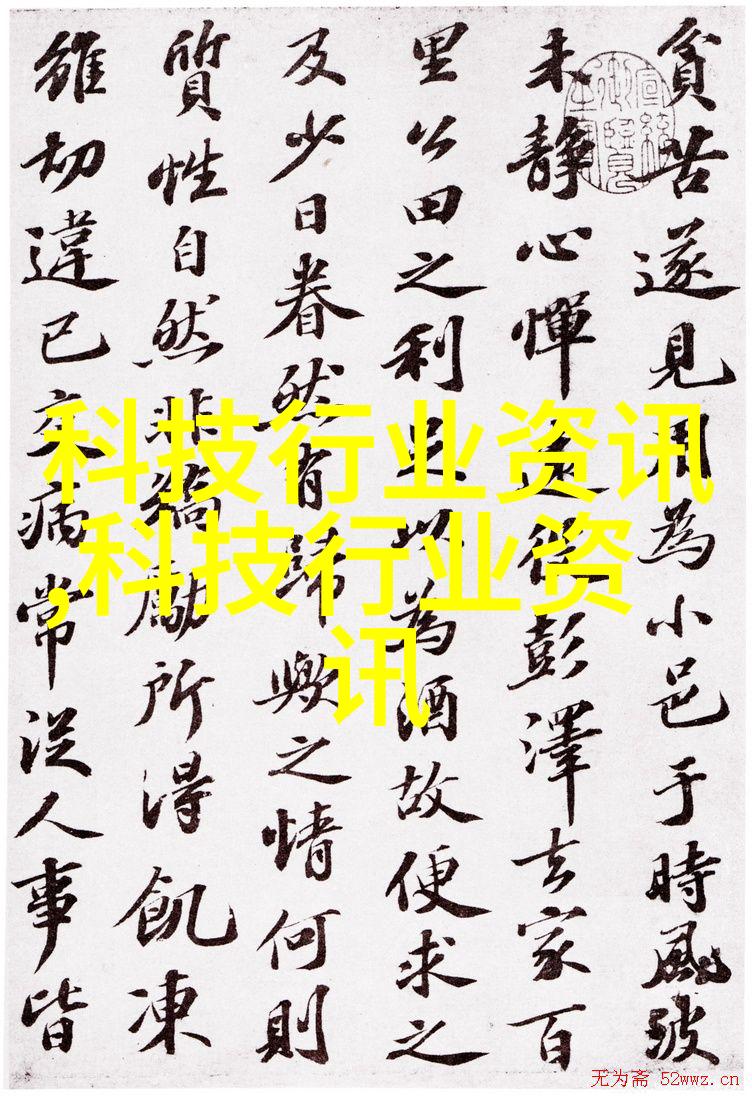 貧苦遂見用為小邑于時風波
未静心憚遠役彭澤去家百
里公田之利足以為酒故便求之
及少日眷然有歸歟之情何則
質性自然非矯勵所得飢凍
雖切違己交病常從人事皆
宣統
御覽
科技行业资讯
,科技行业资
讯
无为斋 52wwz.cn